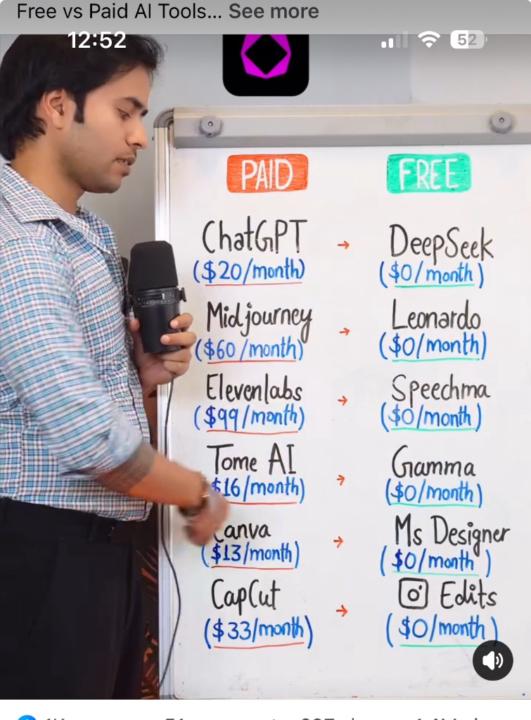 Free vs Paid AI Tools... See more
12:52
52
PAID FREE
ChatGPT → DeepSeek
($20/month) ($0/month)
Midjourney → Leonardo
($60/month) ($0/month)
Elevenlabs → Speechma
($99/month) ($0/month)
Tome AI → Gamma
$16/month) ($0/month)
Canva → Ms Designer
($13/month) ($0/month)
CapCut → Edits
($33/month) ($0/month)